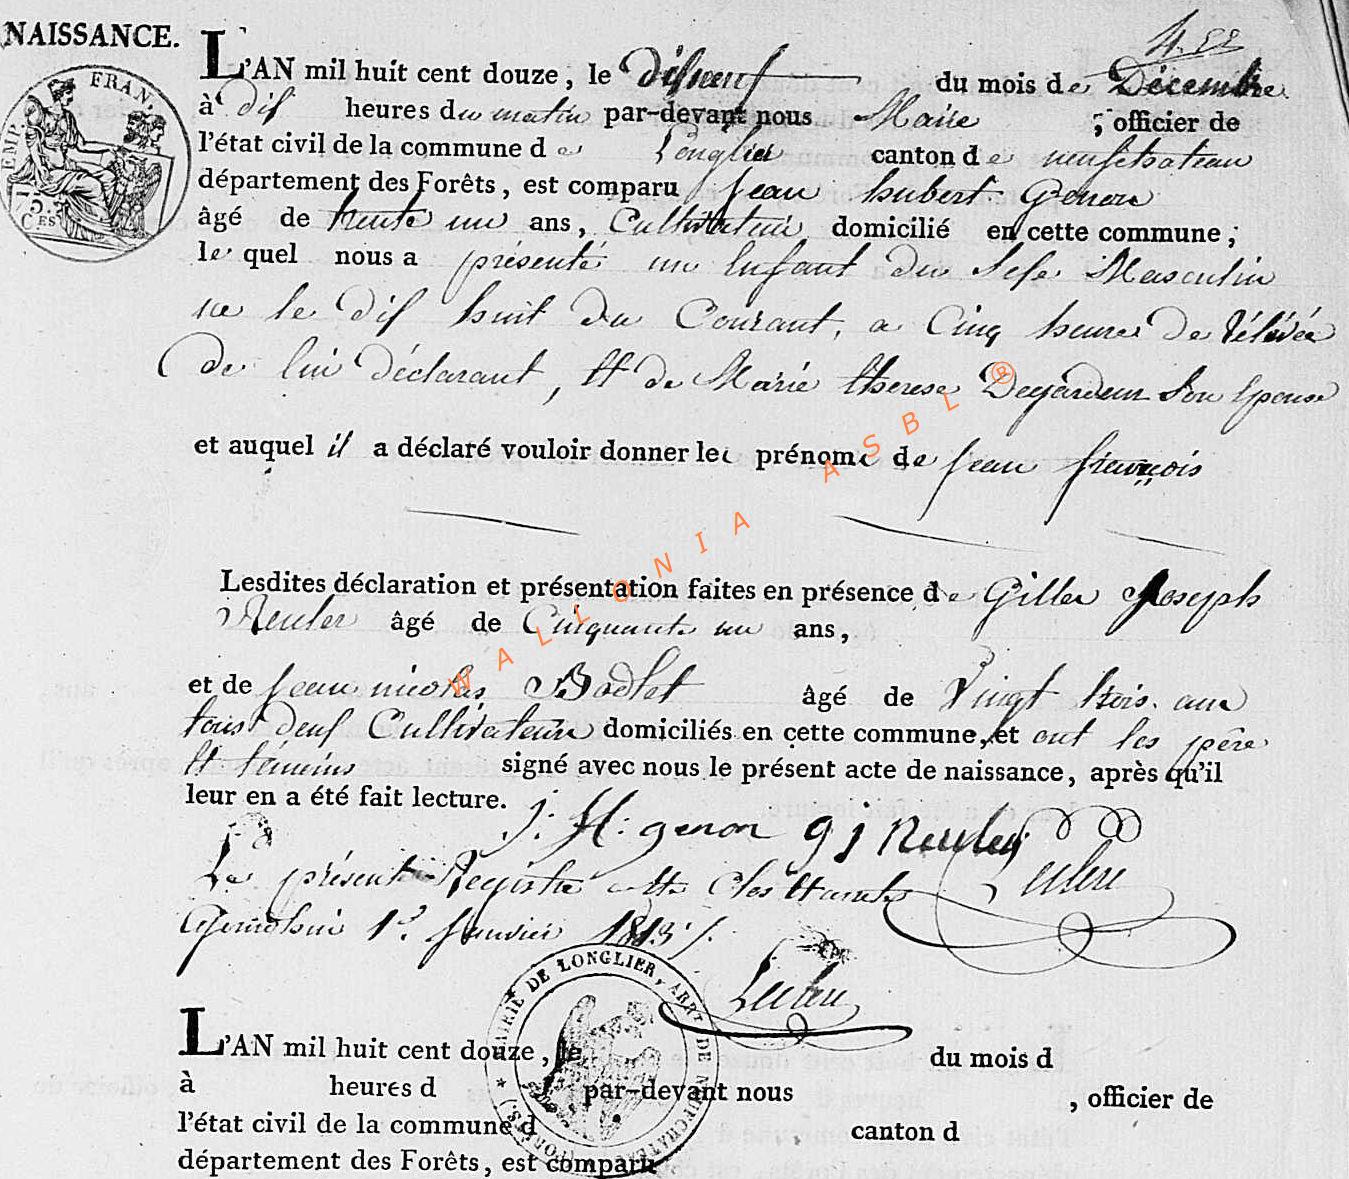 NAISSANCE.
L'AN mil huit cent douze, le disneuf du mois de Décembre
à dis heures du matin par-devant nous Maire, officier de
l'état civil de la commune de Longlier canton de neufchateau
département des Forêts, est comparu Jean hubert Genon
âgé de trente un ans, Cultivateur domicilié en cette commune;
le quel nous a présenté un Enfant du Sexe Masculin
né le dis huit du Courant, a Cinq heures de rélévée
de lui déclarant, et de Marie therese Dejardeun Son Epouse
et auquel il a déclaré vouloir donner les prénoms de Jean françois
Lesdites déclaration et présentation faites en présence de Gilles Joseph
Reuler âgé de Cinquante un ans,
et de Jean nicolas Bodlet âgé de Vingt trois ans
tous deux Cultivateurs domiciliés en cette commune, et ont les père
et témoins signé avec nous le présent acte de naissance, après qu'il
leur en a été fait lecture.
J: H: genon g j Reuler
Le présent Registre clos
1er Janvier 1813
L'AN mil huit cent douze, le du mois d
à heures d par-devant nous , officier de
l'état civil de la commune d canton d
département des Forêts, est comparu
EMP. FRAN.
CES
MAIRIE DE LONGLIER, ARRT DE NEUFCHATEAU (FORETS.)
WALLONIA ASBL ®